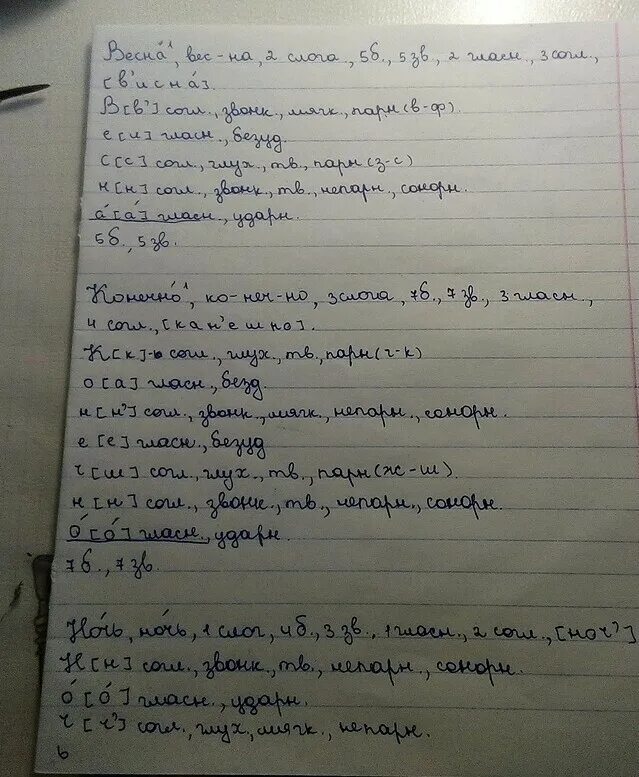 Весна́¹, вес-на, 2 слога, 5б., 5зв., 2 гласн., 3согл.,
[в'и с н а́].
В[в'] согл., звонк., мягк., парн (в-ф).
е [и] гласн., безуд.
с [с] согл., глух., тв., парн (з-с)
н [н] согл., звонк., тв., непарн., сонорн.
а́ [а́] гласн., ударн.
5б., 5зв.
Конечно́¹, ко-неч-но, 3слога, 7б., 7зв., 3 гласн.,
4 согл., [к а н'е ш н о].
К[к]-ю согл., глух., тв., парн (г-к)
о [а] гласн., безд.
н [н'] согл., звонк., мягк., непарн., сонорн.
е [е] гласн., безуд
ч [ш] согл., глух., тв., парн (ж-ш).
н [н] согл., звонк., тв., непарн., сонорн.
о́ [о́] гласн., ударн.
7б., 7зв.
Но́чь, но́чь, 1 слог, 4б., 3 зв., 1гласн., 2 согл., [ноч']
Н [н] согл., звонк., тв., непарн., сонорн.
о́ [о́] гласн., ударн.
ч [ч'] согл., глух, мягк., непарн.
ь